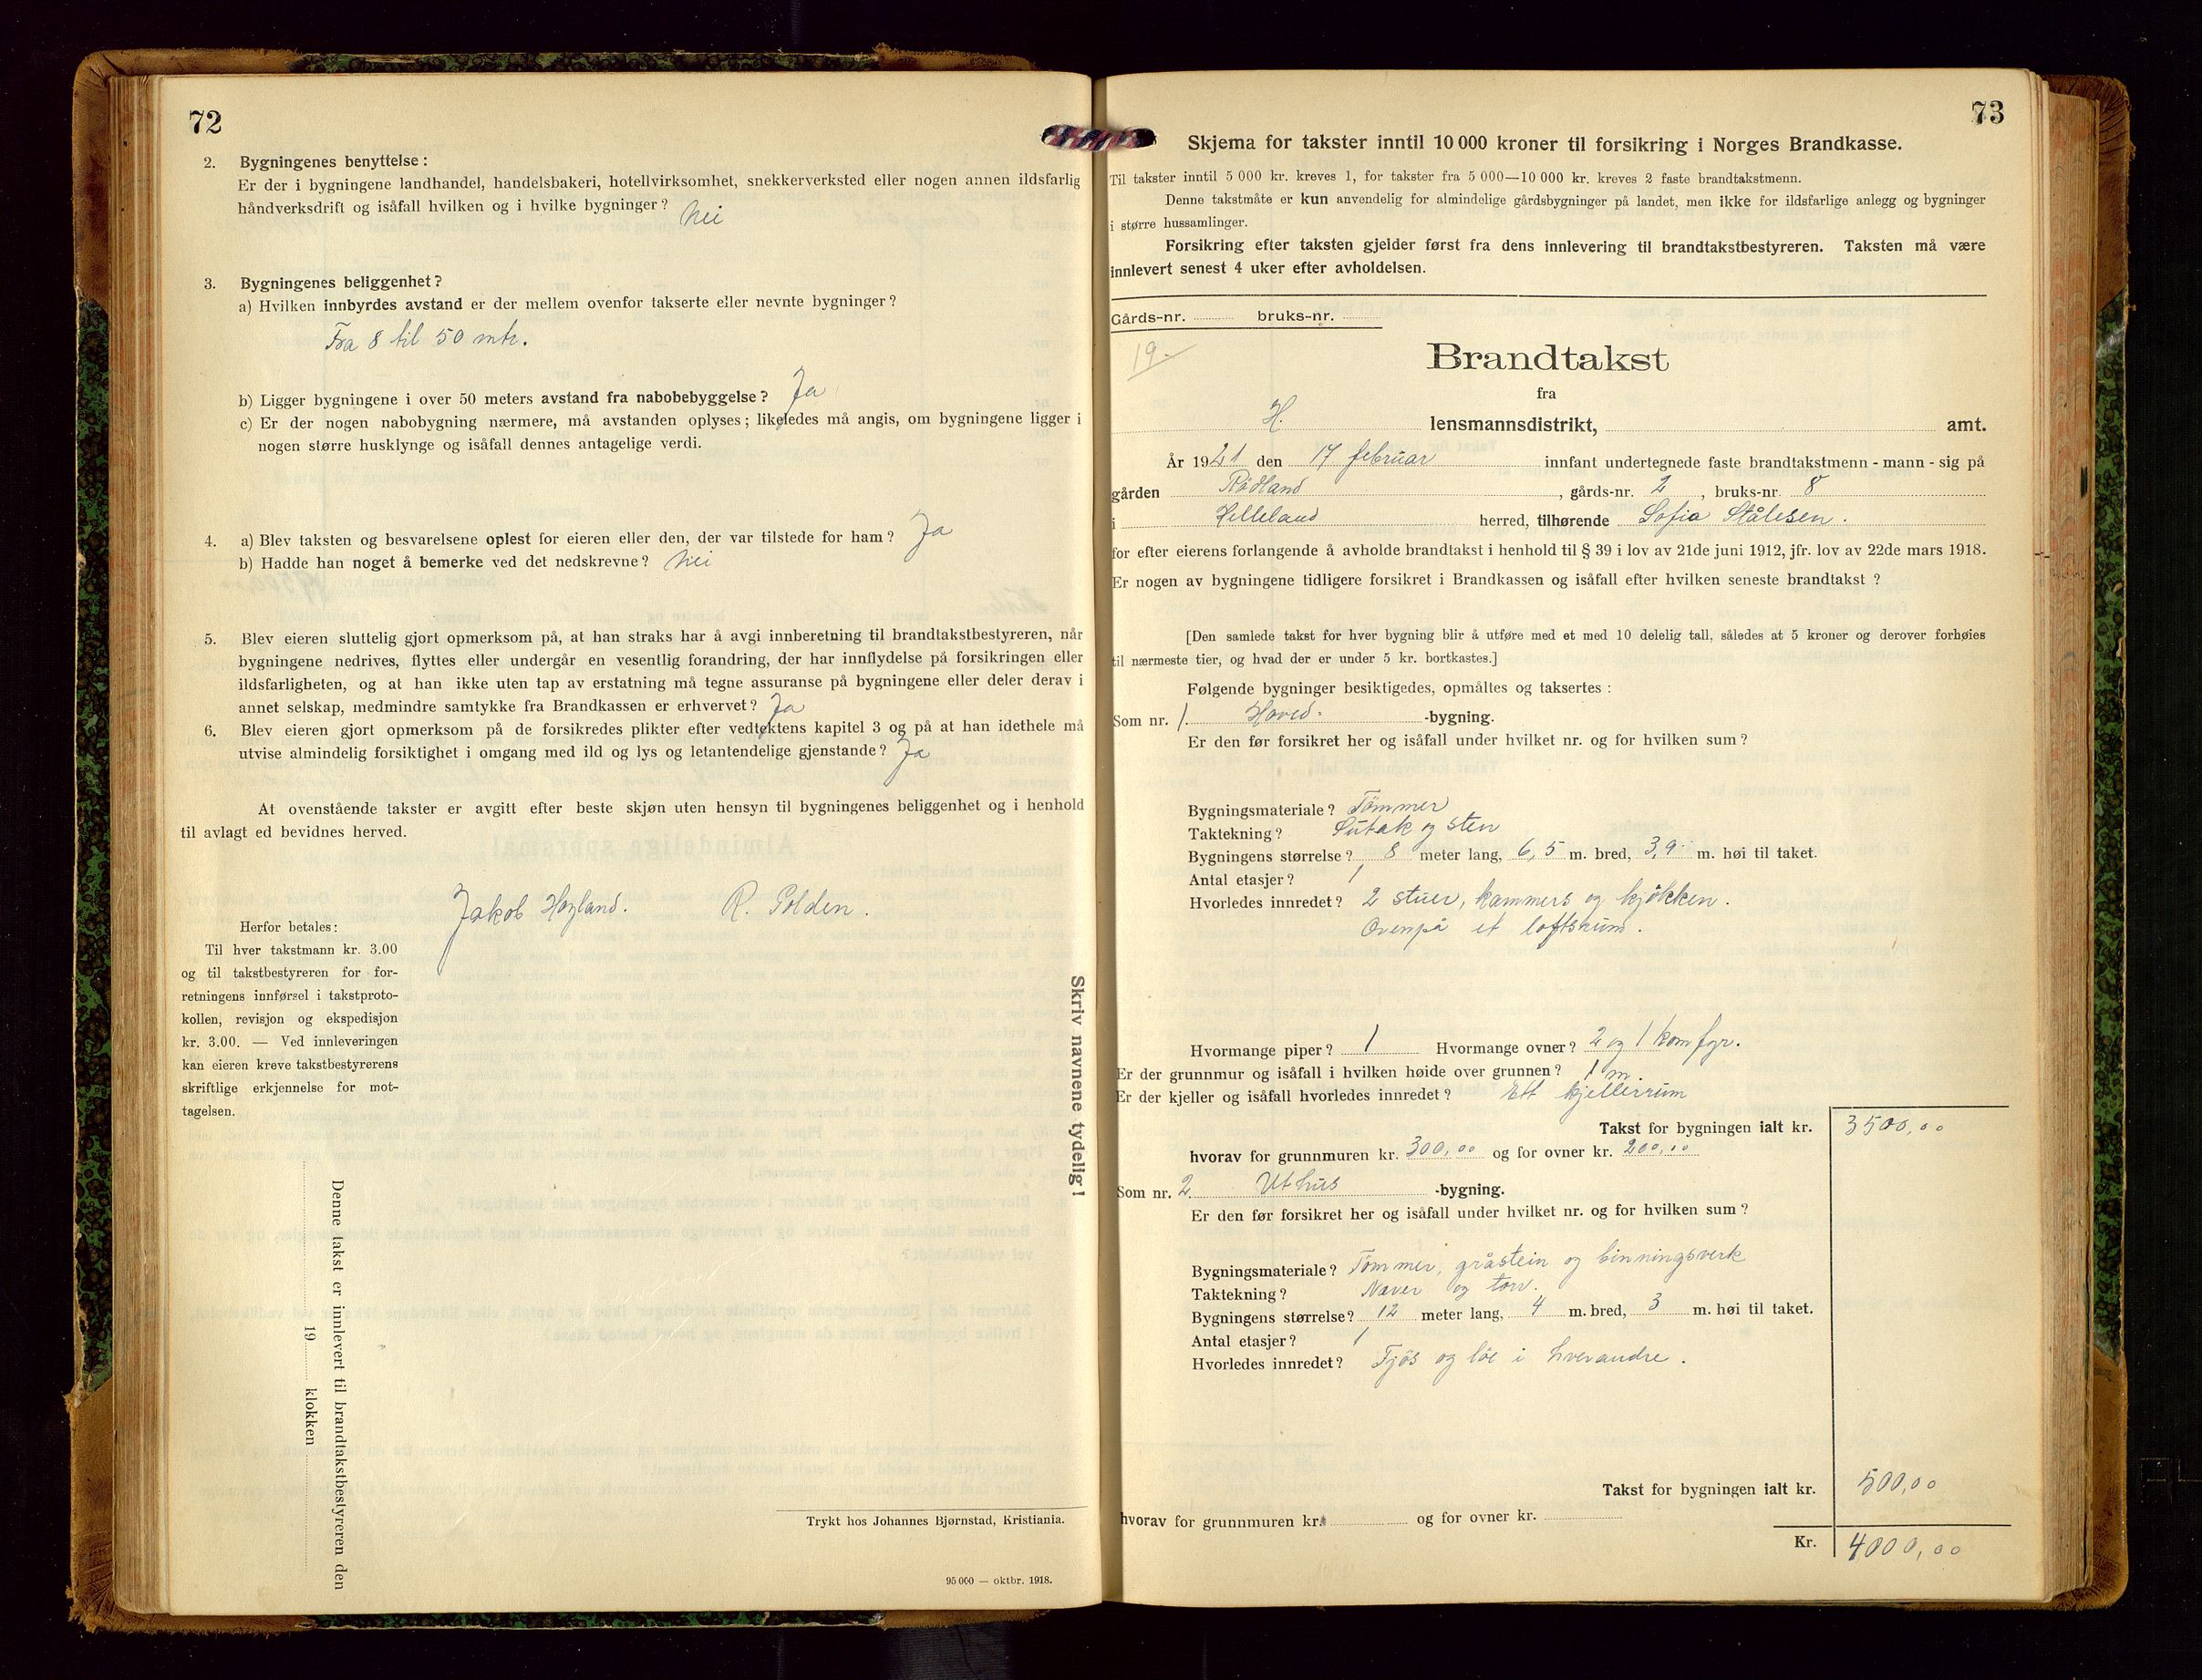 72
2. Bygningenes benyttelse:
Er der i bygningene landhandel, handelsbakeri, hotellvirksomhet, snekkerverksted eller nogen annen ildsfarlig
håndverksdrift og isåfall hvilken og i hvilke bygninger? Nei
3. Bygningenes beliggenhet?
a) Hvilken innbyrdes avstand er der mellem ovenfor takserte eller nevnte bygninger?
Fra 8 til 50 mtr.
b) Ligger bygningene i over 50 meters avstand fra nabobebyggelse? Ja
c) Er der nogen nabobygning nærmere, må avstanden oplyses; likeledes må angis, om bygningene ligger i
nogen større husklynge og isåfall dennes antagelige verdi.
4. a) Blev taksten og besvarelsene oplest for eieren eller den, der var tilstede for ham? Ja
b) Hadde han noget å bemerke ved det nedskrevne? Nei
5. Blev eieren sluttelig gjort opmerksom på, at han straks har å avgi innberetning til brandtakstbestyreren, når
bygningene nedrives, flyttes eller undergår en vesentlig forandring, der har innflydelse på forsikringen eller
ildsfarligheten, og at han ikke uten tap av erstatning må tegne assuranse på bygningene eller deler derav i
annet selskap, medmindre samtykke fra Brandkassen er erhvervet? Ja
6. Blev eieren gjort opmerksom på de forsikredes plikter efter vedtektens kapitel 3 og på at han idethele må
utvise almindelig forsiktighet i omgang med ild og lys og letantendelige gjenstande? Ja
At ovenstående takster er avgitt efter beste skjøn uten hensyn til bygningenes beliggenhet og i henhold
til avlagt ed bevidnes herved.
Jakob Høyland. R. Polden.
Herfor betales:
Til hver takstmann kr. 3.00
og til takstbestyreren for for-
retningens innførsel i takstproto-
kollen, revisjon og ekspedisjon
kr. 3.00. — Ved innleveringen
kan eieren kreve takstbestyrerens
skriftlige erkjennelse for mot-
tagelsen.
Denne takst er innlevert til brandtakstbestyreren den
19 klokken
Skriv navnene tydelig!
Trykt hos Johannes Bjørnstad, Kristiania.
95 000 — oktbr. 1918.
73
Skjema for takster inntil 10 000 kroner til forsikring i Norges Brandkasse.
Til takster inntil 5 000 kr. kreves 1, for takster fra 5 000—10 000 kr. kreves 2 faste brandtakstmenn.
Denne takstmåte er kun anvendelig for almindelige gårdsbygninger på landet, men ikke for ildsfarlige anlegg og bygninger
i større hussamlinger.
Forsikring efter taksten gjelder først fra dens innlevering til brandtakstbestyreren. Taksten må være
innlevert senest 4 uker efter avholdelsen.
Gårds-nr. bruks-nr.
19.
Brandtakst
fra
H. lensmannsdistrikt, amt.
År 1921 den 17 februar innfant undertegnede faste brandtakstmenn - mann - sig på
gården Rødland, gårds-nr. 2, bruks-nr. 8
i Helleland herred, tilhørende Sofia Stålesen.
for efter eierens forlangende å avholde brandtakst i henhold til § 39 i lov av 21de juni 1912, jfr. lov av 22de mars 1918.
Er nogen av bygningene tidligere forsikret i Brandkassen og isåfall efter hvilken seneste brandtakst?
[Den samlede takst for hver bygning blir å utføre med et med 10 delelig tall, således at 5 kroner og derover forhøies
til nærmeste tier, og hvad der er under 5 kr. bortkastes.]
Følgende bygninger besiktigedes, opmåltes og taksertes:
Som nr. 1. Hoved- -bygning.
Er den før forsikret her og isåfall under hvilket nr. og for hvilken sum?
Bygningsmateriale? Tømmer
Taktekning? Sutak og sten
Bygningens størrelse? 8 meter lang, 6,5 m. bred, 3,9 m. høi til taket.
Antal etasjer? 1
Hvorledes innredet? 2 stuer, kammers og kjøkken.
Ovenpå et loftsrum.
Hvormange piper? 1 Hvormange ovner? 2 og 1 komfyr.
Er der grunnmur og isåfall i hvilken høide over grunnen? 1 m.
Er der kjeller og isåfall hvorledes innredet? Ett kjellerrum
Takst for bygningen ialt kr. 3500,00
hvorav for grunnmuren kr. 300,00 og for ovner kr. 200,00
Som nr. 2. Uthus -bygning.
Er den før forsikret her og isåfall under hvilket nr. og for hvilken sum?
Bygningsmateriale? Tømmer, gråstein og binningsverk
Taktekning? Never og torv.
Bygningens størrelse? 12 meter lang, 4 m. bred, 3 m. høi til taket.
Antal etasjer? 1
Hvorledes innredet? Fjøs og løe i hverandre.
Takst for bygningen ialt kr. 500,00
hvorav for grunnmuren kr. og for ovner kr.
Kr. 4000,00